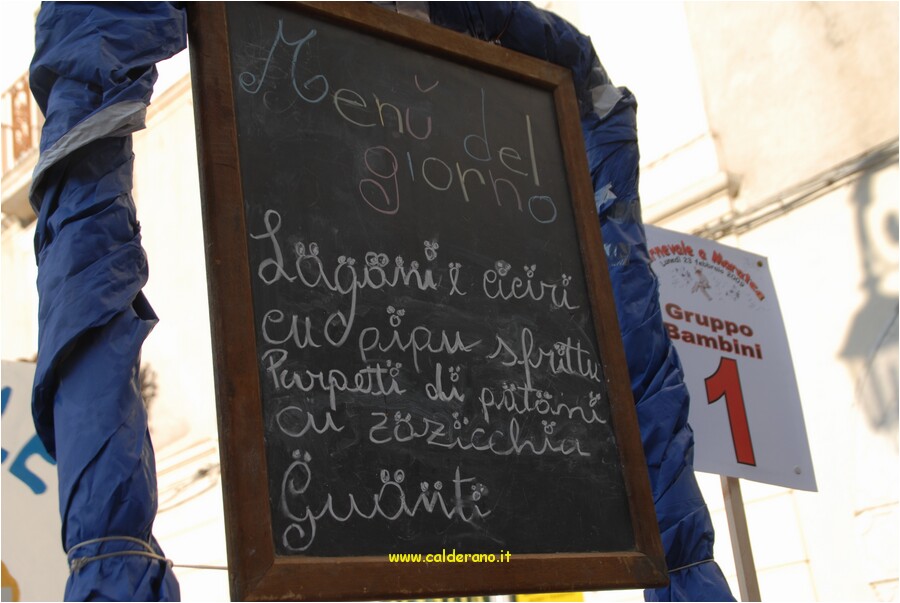 Menù del
giorno
Lagani e ciciri
cu pipu sfrittu
Purpetti di patani
cu zazicchia
Guanti
Carnevale a Maratea
Lunedì 23 febbraio 2009
Gruppo
Bambini
1
www.calderano.it